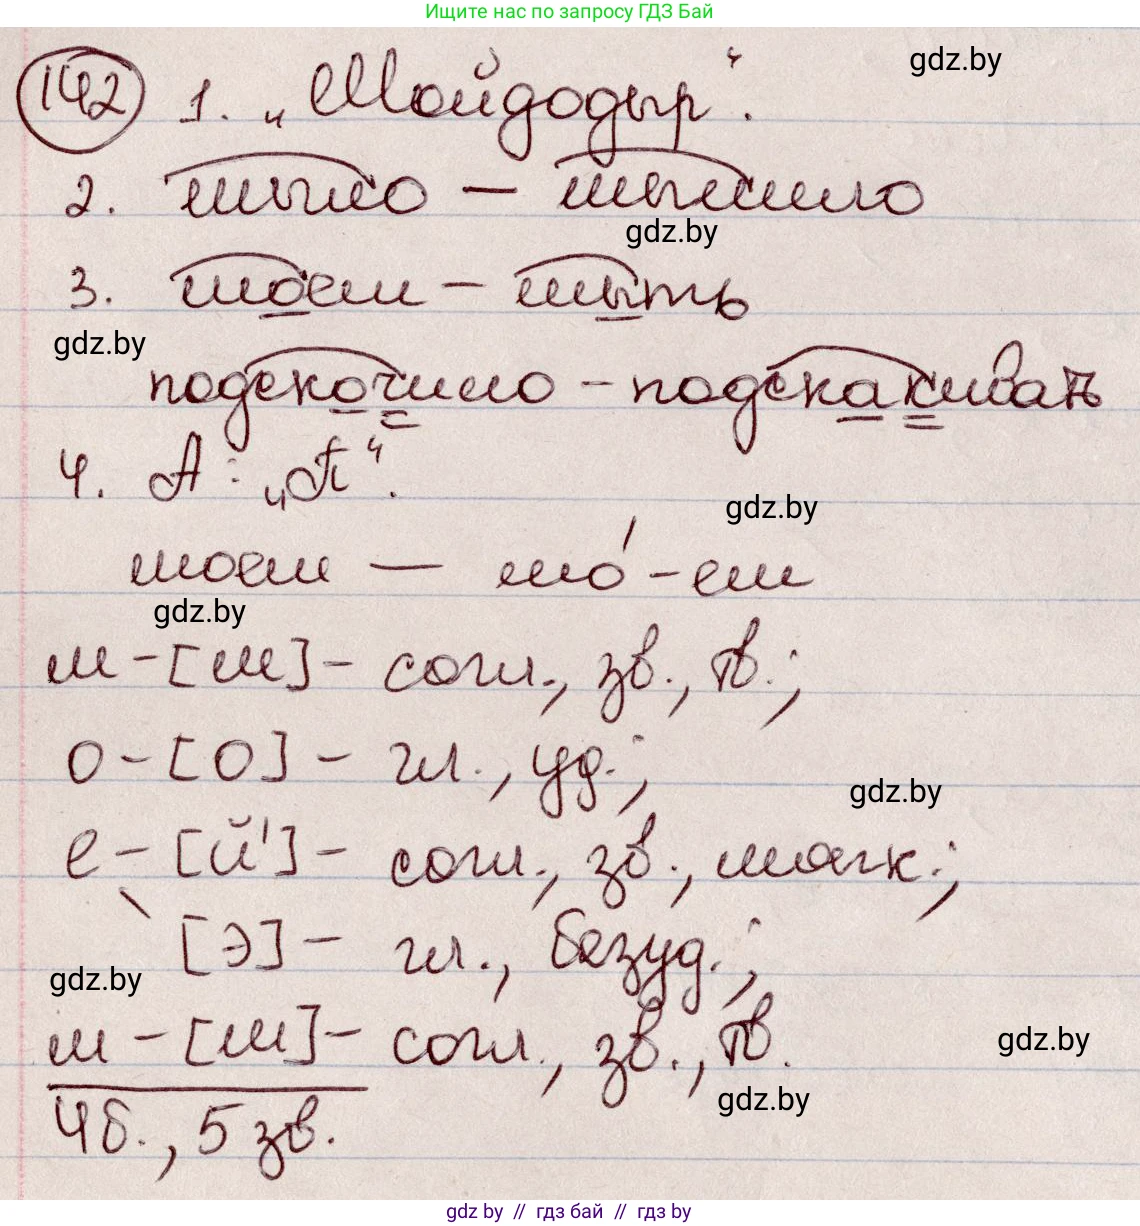 Ищите нас по запросу ГДЗ Бай
gdz.by
142 1. „Мойдодыр“.
2. мыло — мылило
gdz.by
3. моем — мыть
gdz.by
подскочило — подскакивать
4. А : „П“.
gdz.by
моем — мо́-ем
gdz.by
м - [м] - согл., зв., тв.;
о - [о] - гл., уд.;
gdz.by
е - [й'] - согл., зв., мягк.;
\ [э] - гл., безуд.;
gdz.by
м - [м] - согл., зв., тв.
gdz.by
gdz.by
4 б., 5 зв.
gdz by // гдз бай // gdz.by